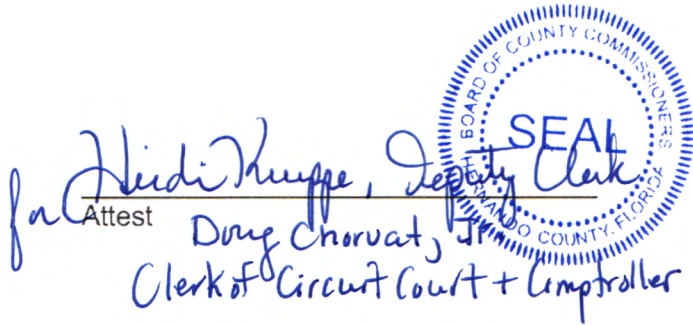 BOARD OF COUNTY COMMISSIONERS
SEAL
HERNANDO COUNTY, FLORIDA
for Heidi Kuppe, Deputy Clerk
Attest
Doug Chorvat, Jr.
Clerk of Circuit Court + Comptroller